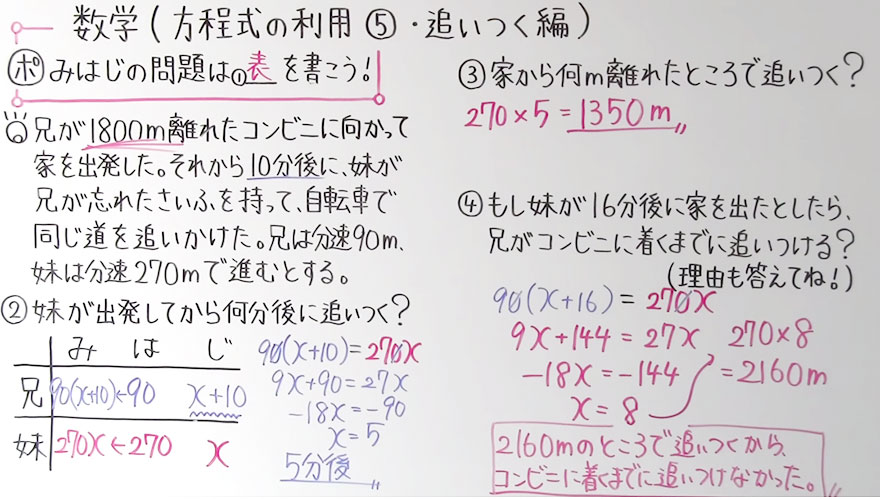 数学(方程式の利用⑤・追いつく編)
ポ みはじの問題は①表を書こう!
兄が1800m離れたコンビニに向かって
家を出発した。それから10分後に、妹が
兄が忘れたさいふを持って、自転車で
同じ道を追いかけた。兄は分速90m、
妹は分速270mで進むとする。
②妹が出発してから何分後に追いつく?
み は じ
兄 90(x+10)←90 x+10
妹 270x←270 x
90(x+10)=270x
9x+90=27x
-18x=-90
x=5
5分後〃
③家から何m離れたところで追いつく?
270×5=1350m〃
④もし妹が16分後に家を出たとしたら、
兄がコンビニに着くまでに追いつける?
(理由も答えてね!)
90(x+16)=270x
9x+144=27x 270×8
-18x=-144 =2160m
x=8
2160mのところで追いつくから、
コンビニに着くまでに追いつけなかった。〃